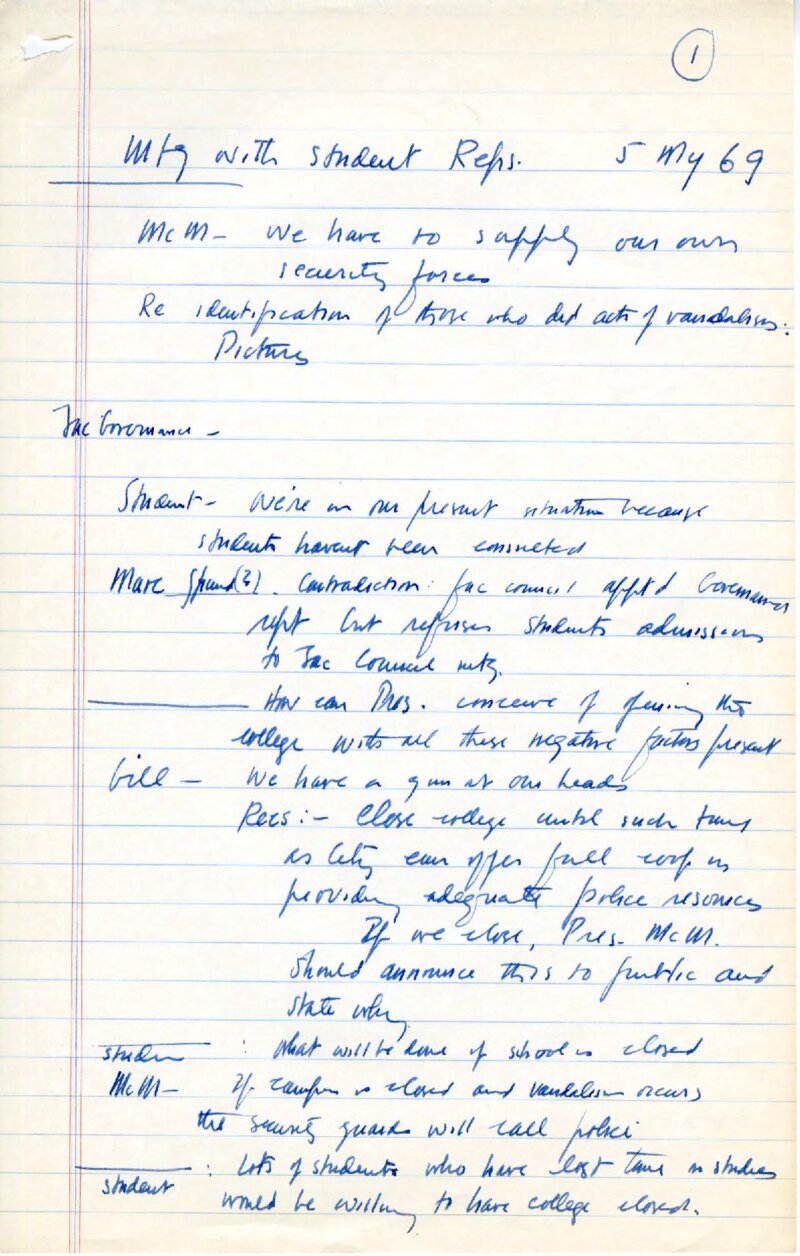 1
Mtg with student Reps. 5 My 69
McM - We have to supply our own
security forces
Re identification of those who did acts of vandalism:
Pictures
Fac Governance -
Student - We're in our present situation because
students havent been consulted
Marc (?). Contradiction: fac council appt'd Governance
rept but refuses students admission
to Fac Council mtg.
How can Pres. conceive of opening this
college with all these negative factors present
Bill - We have a gun at our heads
Recs: - Close college until such time
as City can offer full coop in
providing adequate police resources
If we close, Pres. McM.
should announce this to public and
state why
student : What will be done if school is closed
McM - If campus is closed and vandalism occurs
the security guards will call police
student : Lots of students who have lost time in studies
would be willing to have college closed.